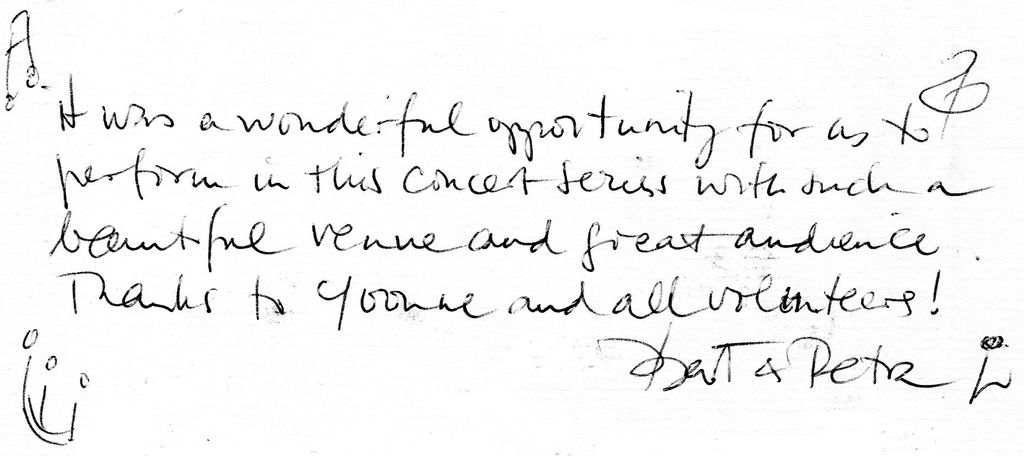 It was a wonderful opportunity for us to
perform in this concert series with such a
beautiful venue and great audience.
Thanks to Yvonne and all volunteers!
& Petra